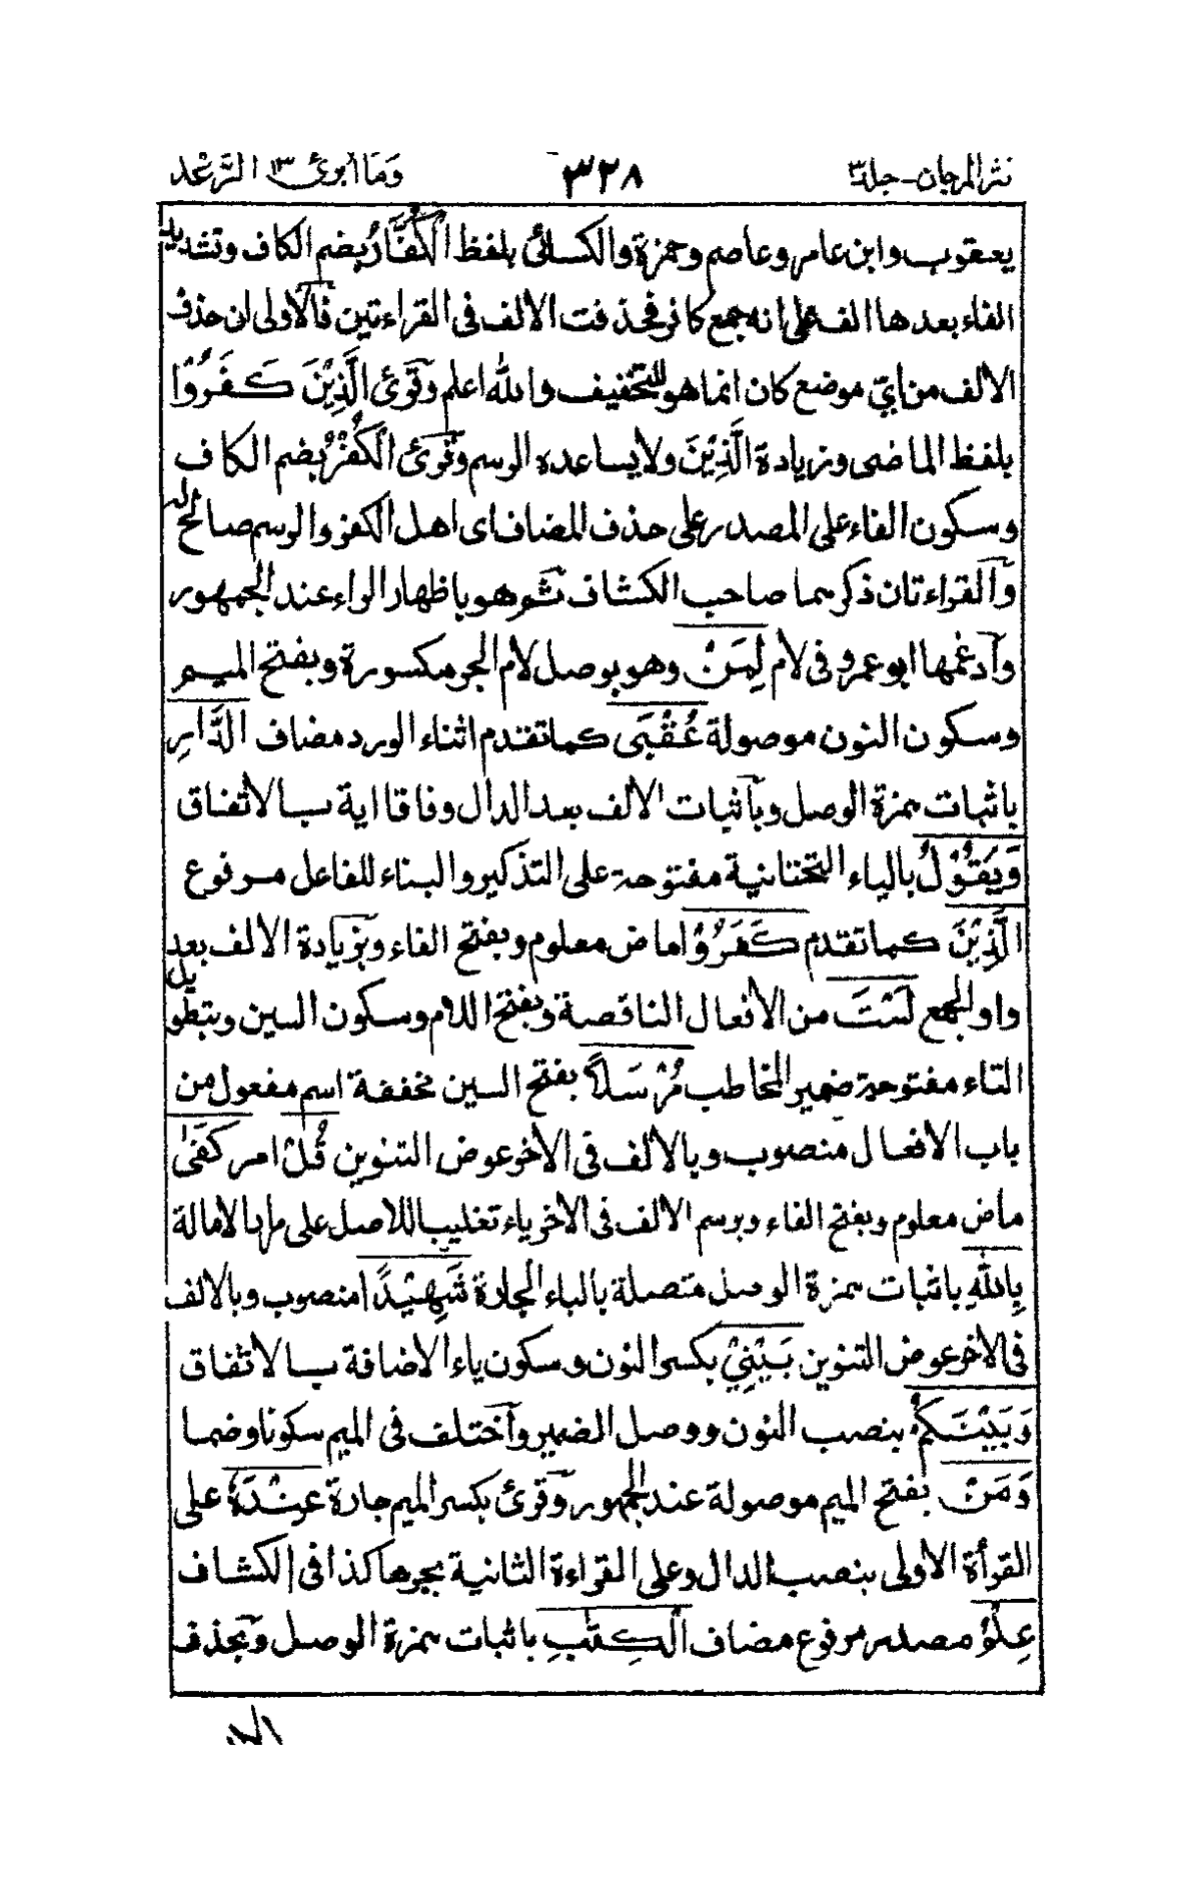 نثر المرجان - جلد ٣ ٣٢٨ وَمَا أُبَرِّئُ ١٣ الرَّعْد
يعقوب وابن عامر وعاصم وحمزة والكسائى بلفظ الْكُفَّارُ بضم الكاف وتشديد
الفاء بعدها الف على انه جمع كافر فحذفت الالف فى القراءتين فالاولى ان حذف
الالف من اىّ موضع كان انما هو للتخفيف والله اعلم وقرئ الَّذِيْنَ كَفَرُوْا
بلفظ الماضى وزيادة الَّذِيْنَ ولا يساعده الرسم وقرئ الْكُفْرُ بضم الكاف
وسكون الفاء على المصدر على حذف المضاف اى اهل الكفر والرسم صالح له
والقراءتان ذكرهما صاحب الكشاف ثم هو باظهار الراء عند الجمهور
وآدغمها ابو عمرو فى لام لِمَنْ وهو بوصل لام الجر مكسورة وبفتح الميم
وسكون النون موصولة عُقْبَى كما تقدم اثناء الورد مضاف الدَّارِ
باثبات همزة الوصل وباثبات الالف بعد الدال وفاقا اية بالاتفاق
وَيَقُوْلُ بالياء التحتانية مفتوحة على التذكير والبناء للفاعل مرفوع
الَّذِيْنَ كما تقدم كَفَرُوْا ماض معلوم وبفتح الفاء وبزيادة الالف بعد
واو الجمع لَسْتَ من الافعال الناقصة وبفتح اللام وسكون السين وبتطويل
التاء مفتوحة ضمير المخاطب مُرْسَلًا بفتح السين مخففة اسم مفعول من
باب الافعال منصوب وبالالف فى الاخر عوض التنوين قُلْ امر كَفَىٰ
ماض معلوم وبفتح الفاء وبرسم الالف فى الاخر ياء تغليبا للاصل على مرا بالامالة
بِاللّٰهِ باثبات همزة الوصل متصلة بالباء الجارة شَهِيْدًا منصوب وبالالف
فى الاخر عوض التنوين بَيْنِيْ بكسر النون وسكون ياء الاضافة بالاتفاق
وَبَيْنَكُمْ بنصب النون ووصل الضمير وآختلف فى الميم سكونا وضما
وَمَنْ بفتح الميم موصولة عند الجمهور وقرئ بكسر الميم جارة عِنْدَهٗ على
القرأة الاولى بنصب الدال وعلى القراءة الثانية بجرها كذا فى الكشاف
عِلْمُ مصدر مرفوع مضاف الْكِتٰبِ باثبات همزة الوصل وبحذف